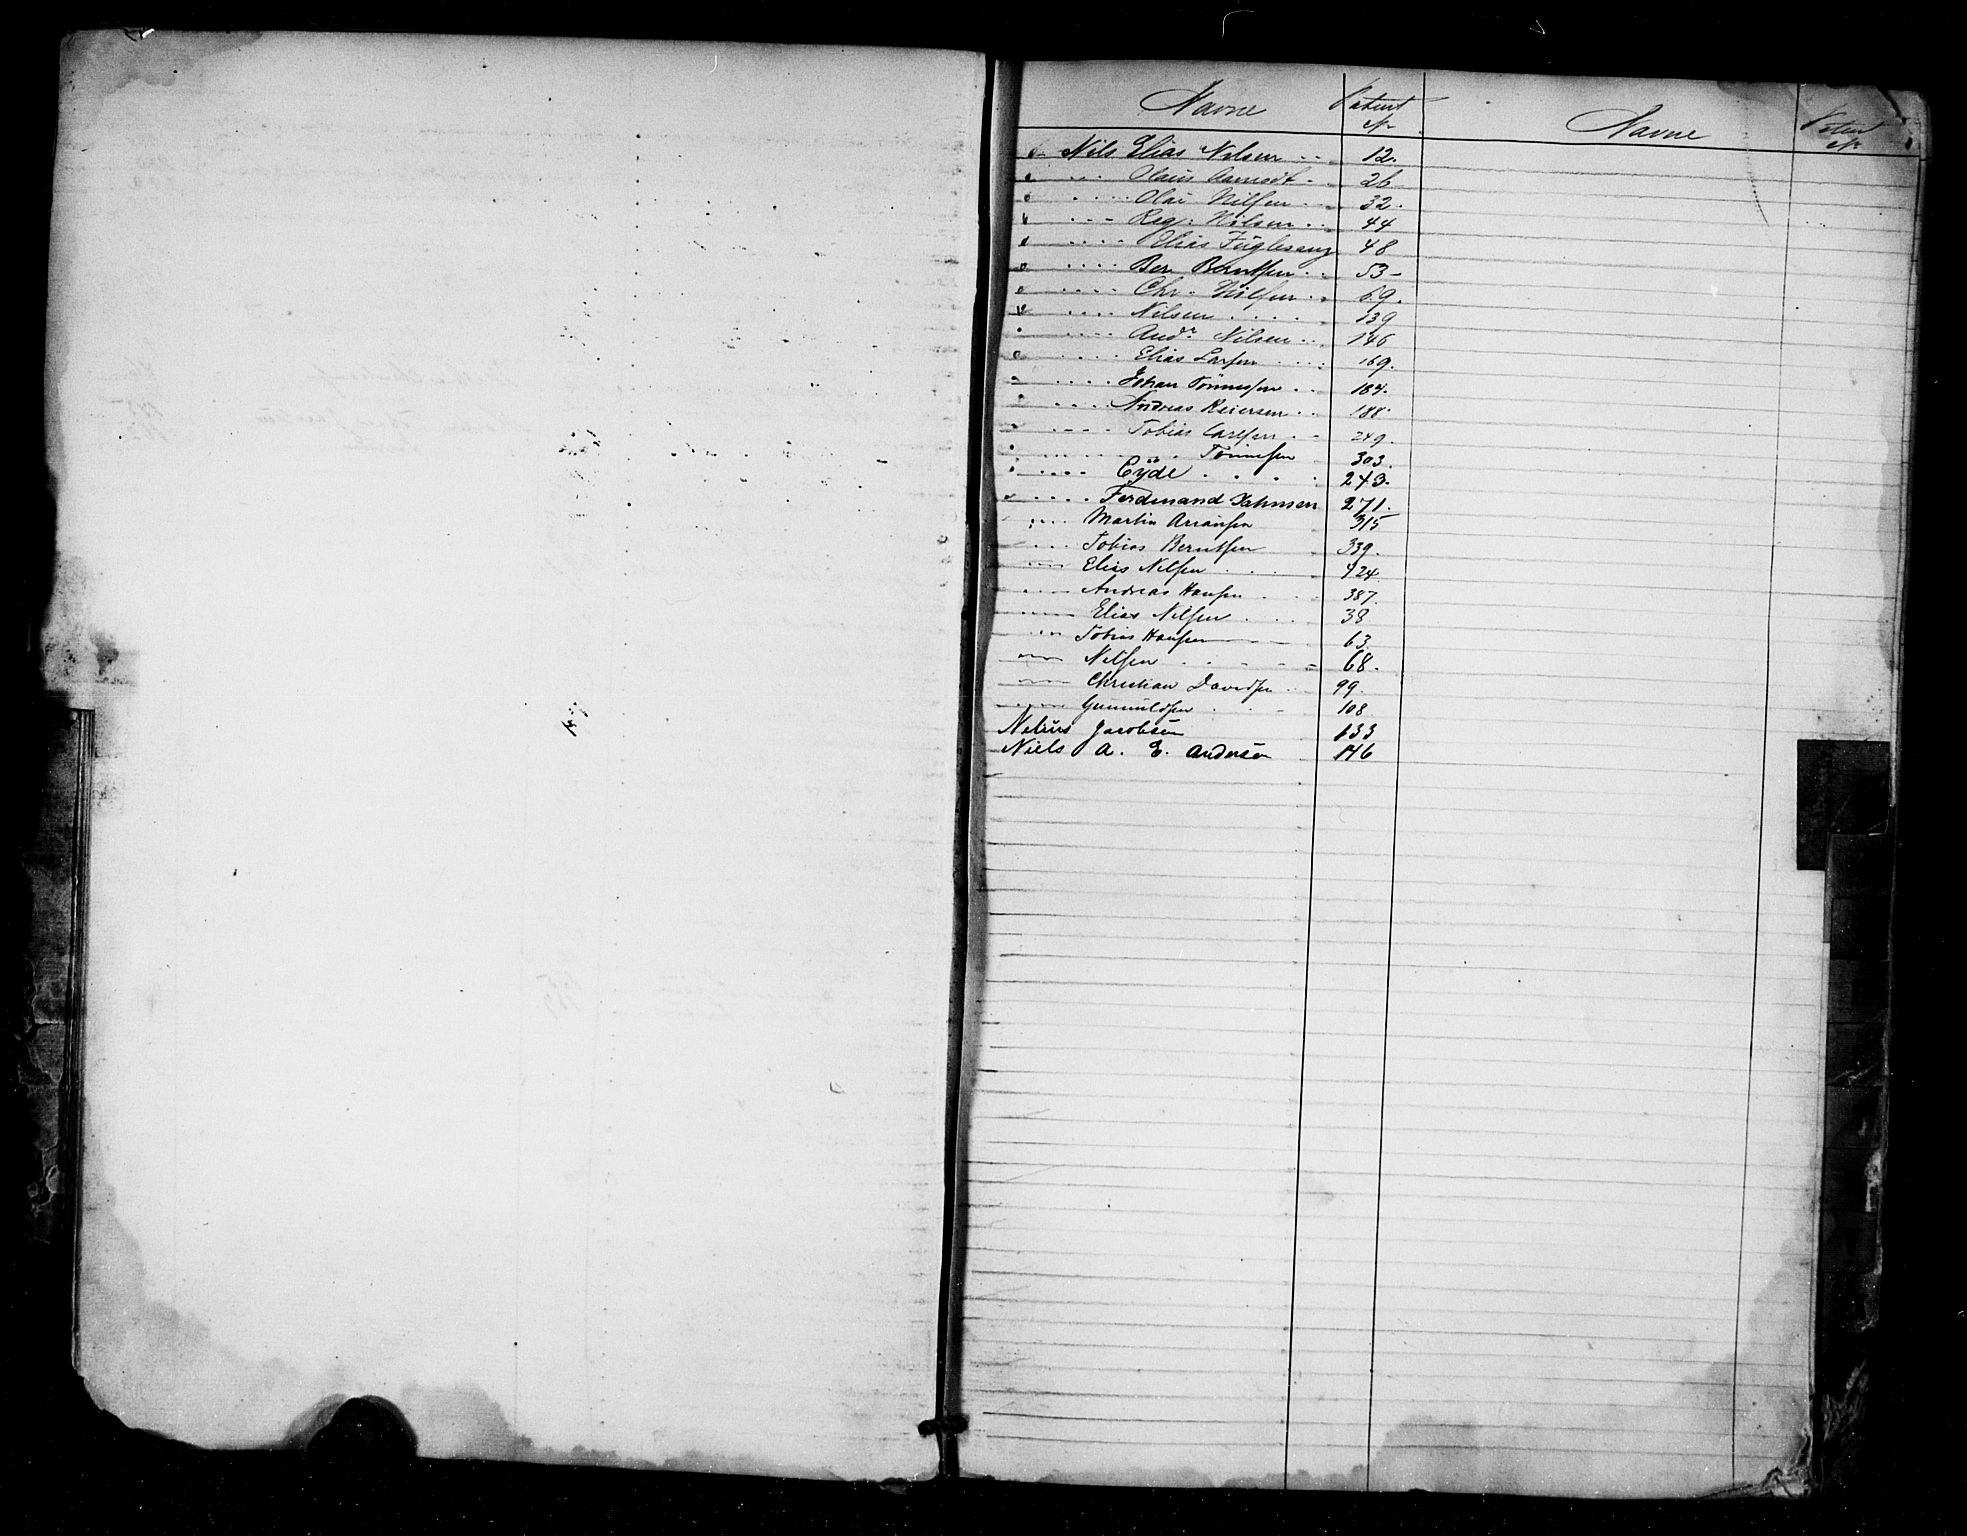 Navne Patent Nr Navne Patent Nr
Nils Elias Nilsen 12.
" Olaus Aamodt 26
" Olai Nilsen 32.
" Reg: Nilsen 44
" Elias Fuglesang 48
" Ber. Berntsen 53
" Chr. Nilsen 59.
" Nilsen 139
" Andr Nilsen 146
" Elias Larsen 169.
" Johan Tönnesen 184.
" Andreas Reiersen 188.
" Tobias Carlsen 249.
" " Tönnesen 303.
" Eÿde 243.
" Ferdinand Jahnsen 271.
" Martin 315
" Tobias Berntsen 339.
" Elias Nilsen 424.
" Andreas Hansen 387.
" Elias Nilsen 38
" Tobias Hansen 63.
" Nilsen 68.
" Christian Davidsen 99.
" Gunnuldsen 108
Nelius Jacobsen 133
Niels A. E. Andersen 146